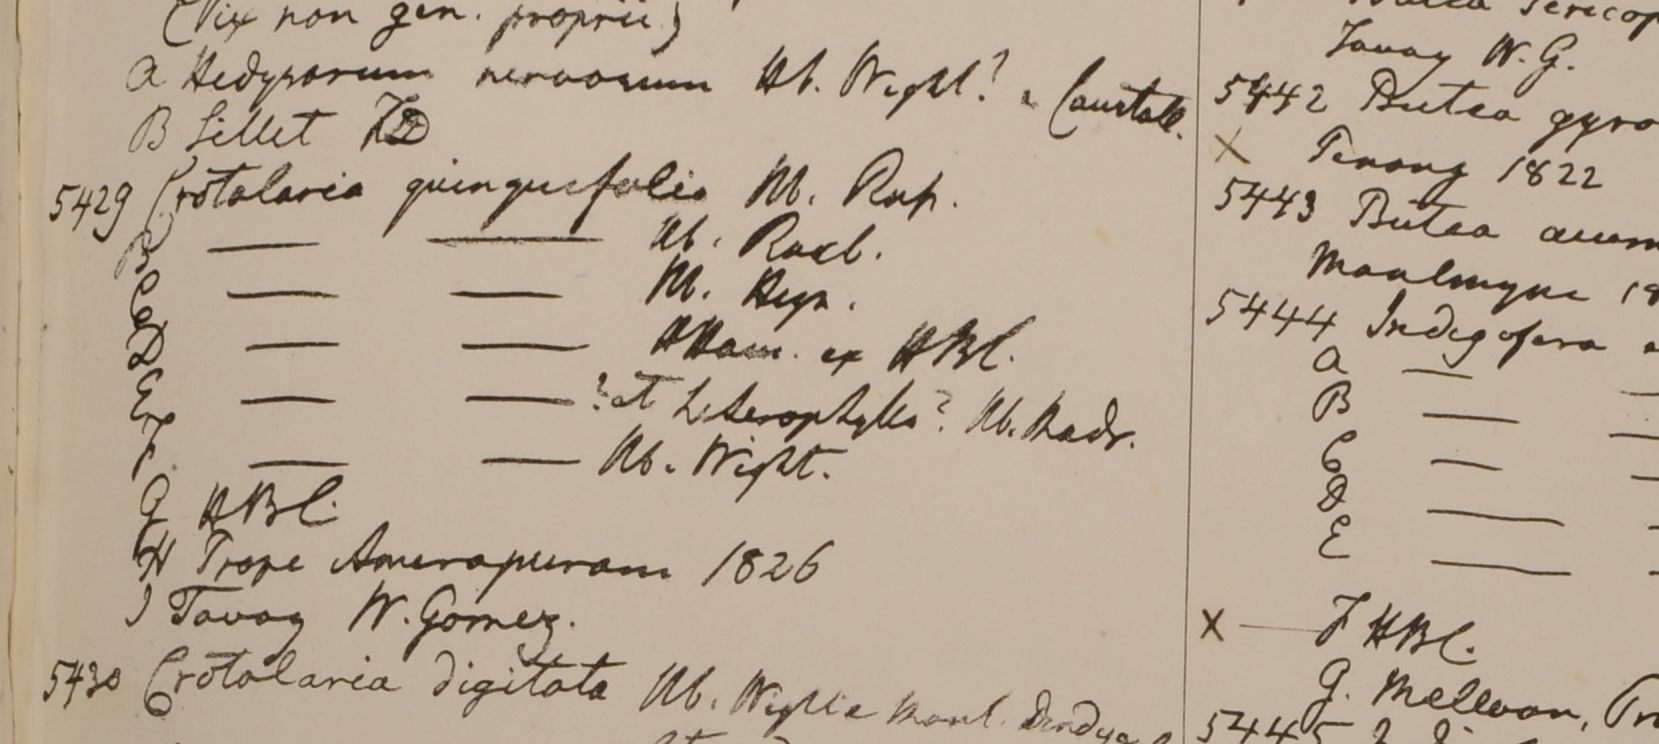 (Vix non gen. proprii)
a Hedysarum nervosum Hb. Wight?
B Sillet
5429 Crotalaria quinquefolia Hb. Rup.
B — — Hb. Roxb.
C — — Hb. Heyn.
D — — HHam. ex HBC.
E — — ? et heterophylla? Hb. Madr.
F — — Hb. Wight.
G HBC.
H Prope Amerapuram 1826
I Tavoy W. Gomez.
5430 Crotalaria digitata Hb. Wight
Tavoy W. G.
5442 Butea gyro
X Penang 1822
5443 Butea acum
5444 Indigofera
a —
B — —
C — —
D — —
E — —
X — F HBC.
G.
5445